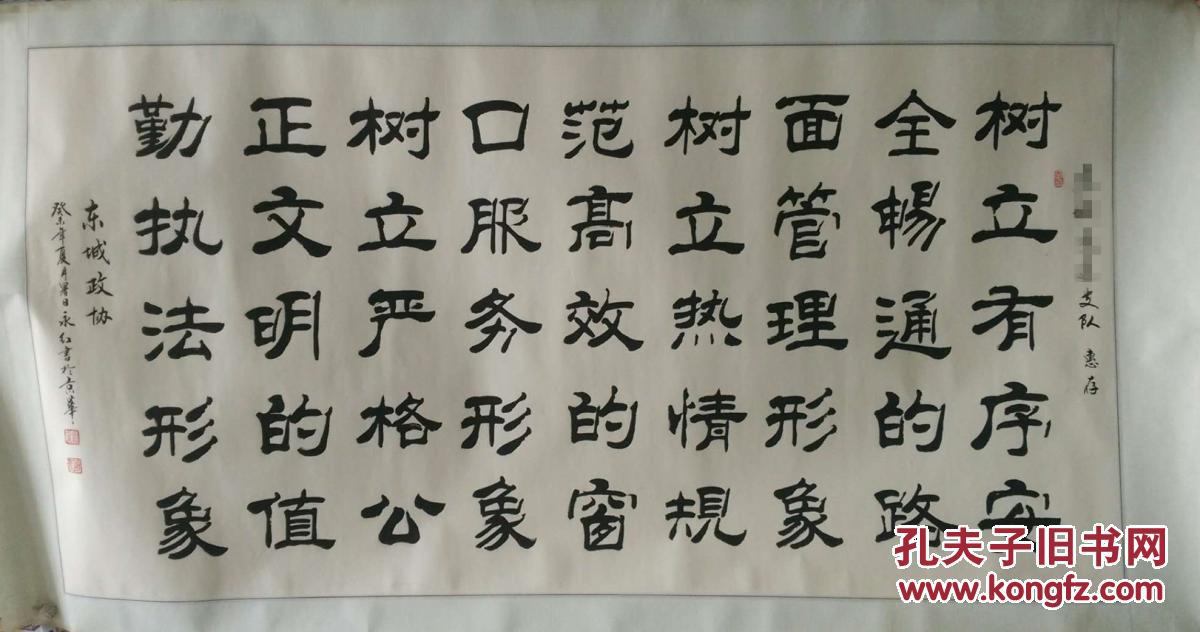 支队 惠存
树立有序安
全暢通的路
面管理形象
树立热情规
范髙效的窗
口服务形象
树立严格公
正文明的值
勤执法形象
东城政协
癸未年夏月署日永红書於京華
孔夫子旧书网
www.kongfz.com